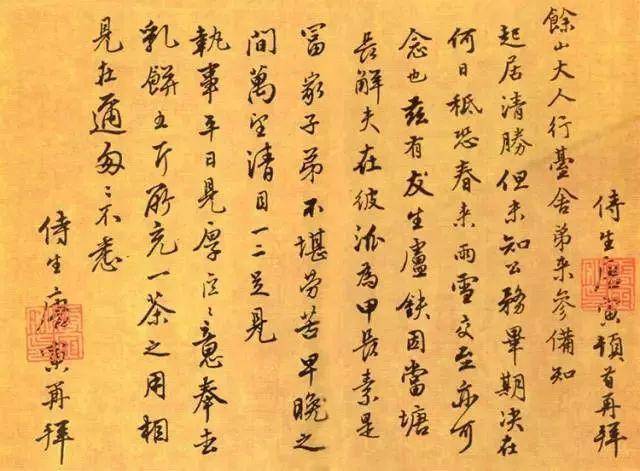 侍生唐寅頓首再拜
餘山大人行臺舍弟來參備知
起居清勝但未知公務畢期决在
何日秪恐春來雨雪交至亦可
念也兹有友生盧鈇因當塘
長解夫在彼派為甲長素是
冨家子弟不堪勞苦早晚之
間萬望清目一二足見
執事平日見厚區〻之意奉去
乳餅五斤所充一茶之用相
見在邇匆〻不悉
侍生唐寅再拜